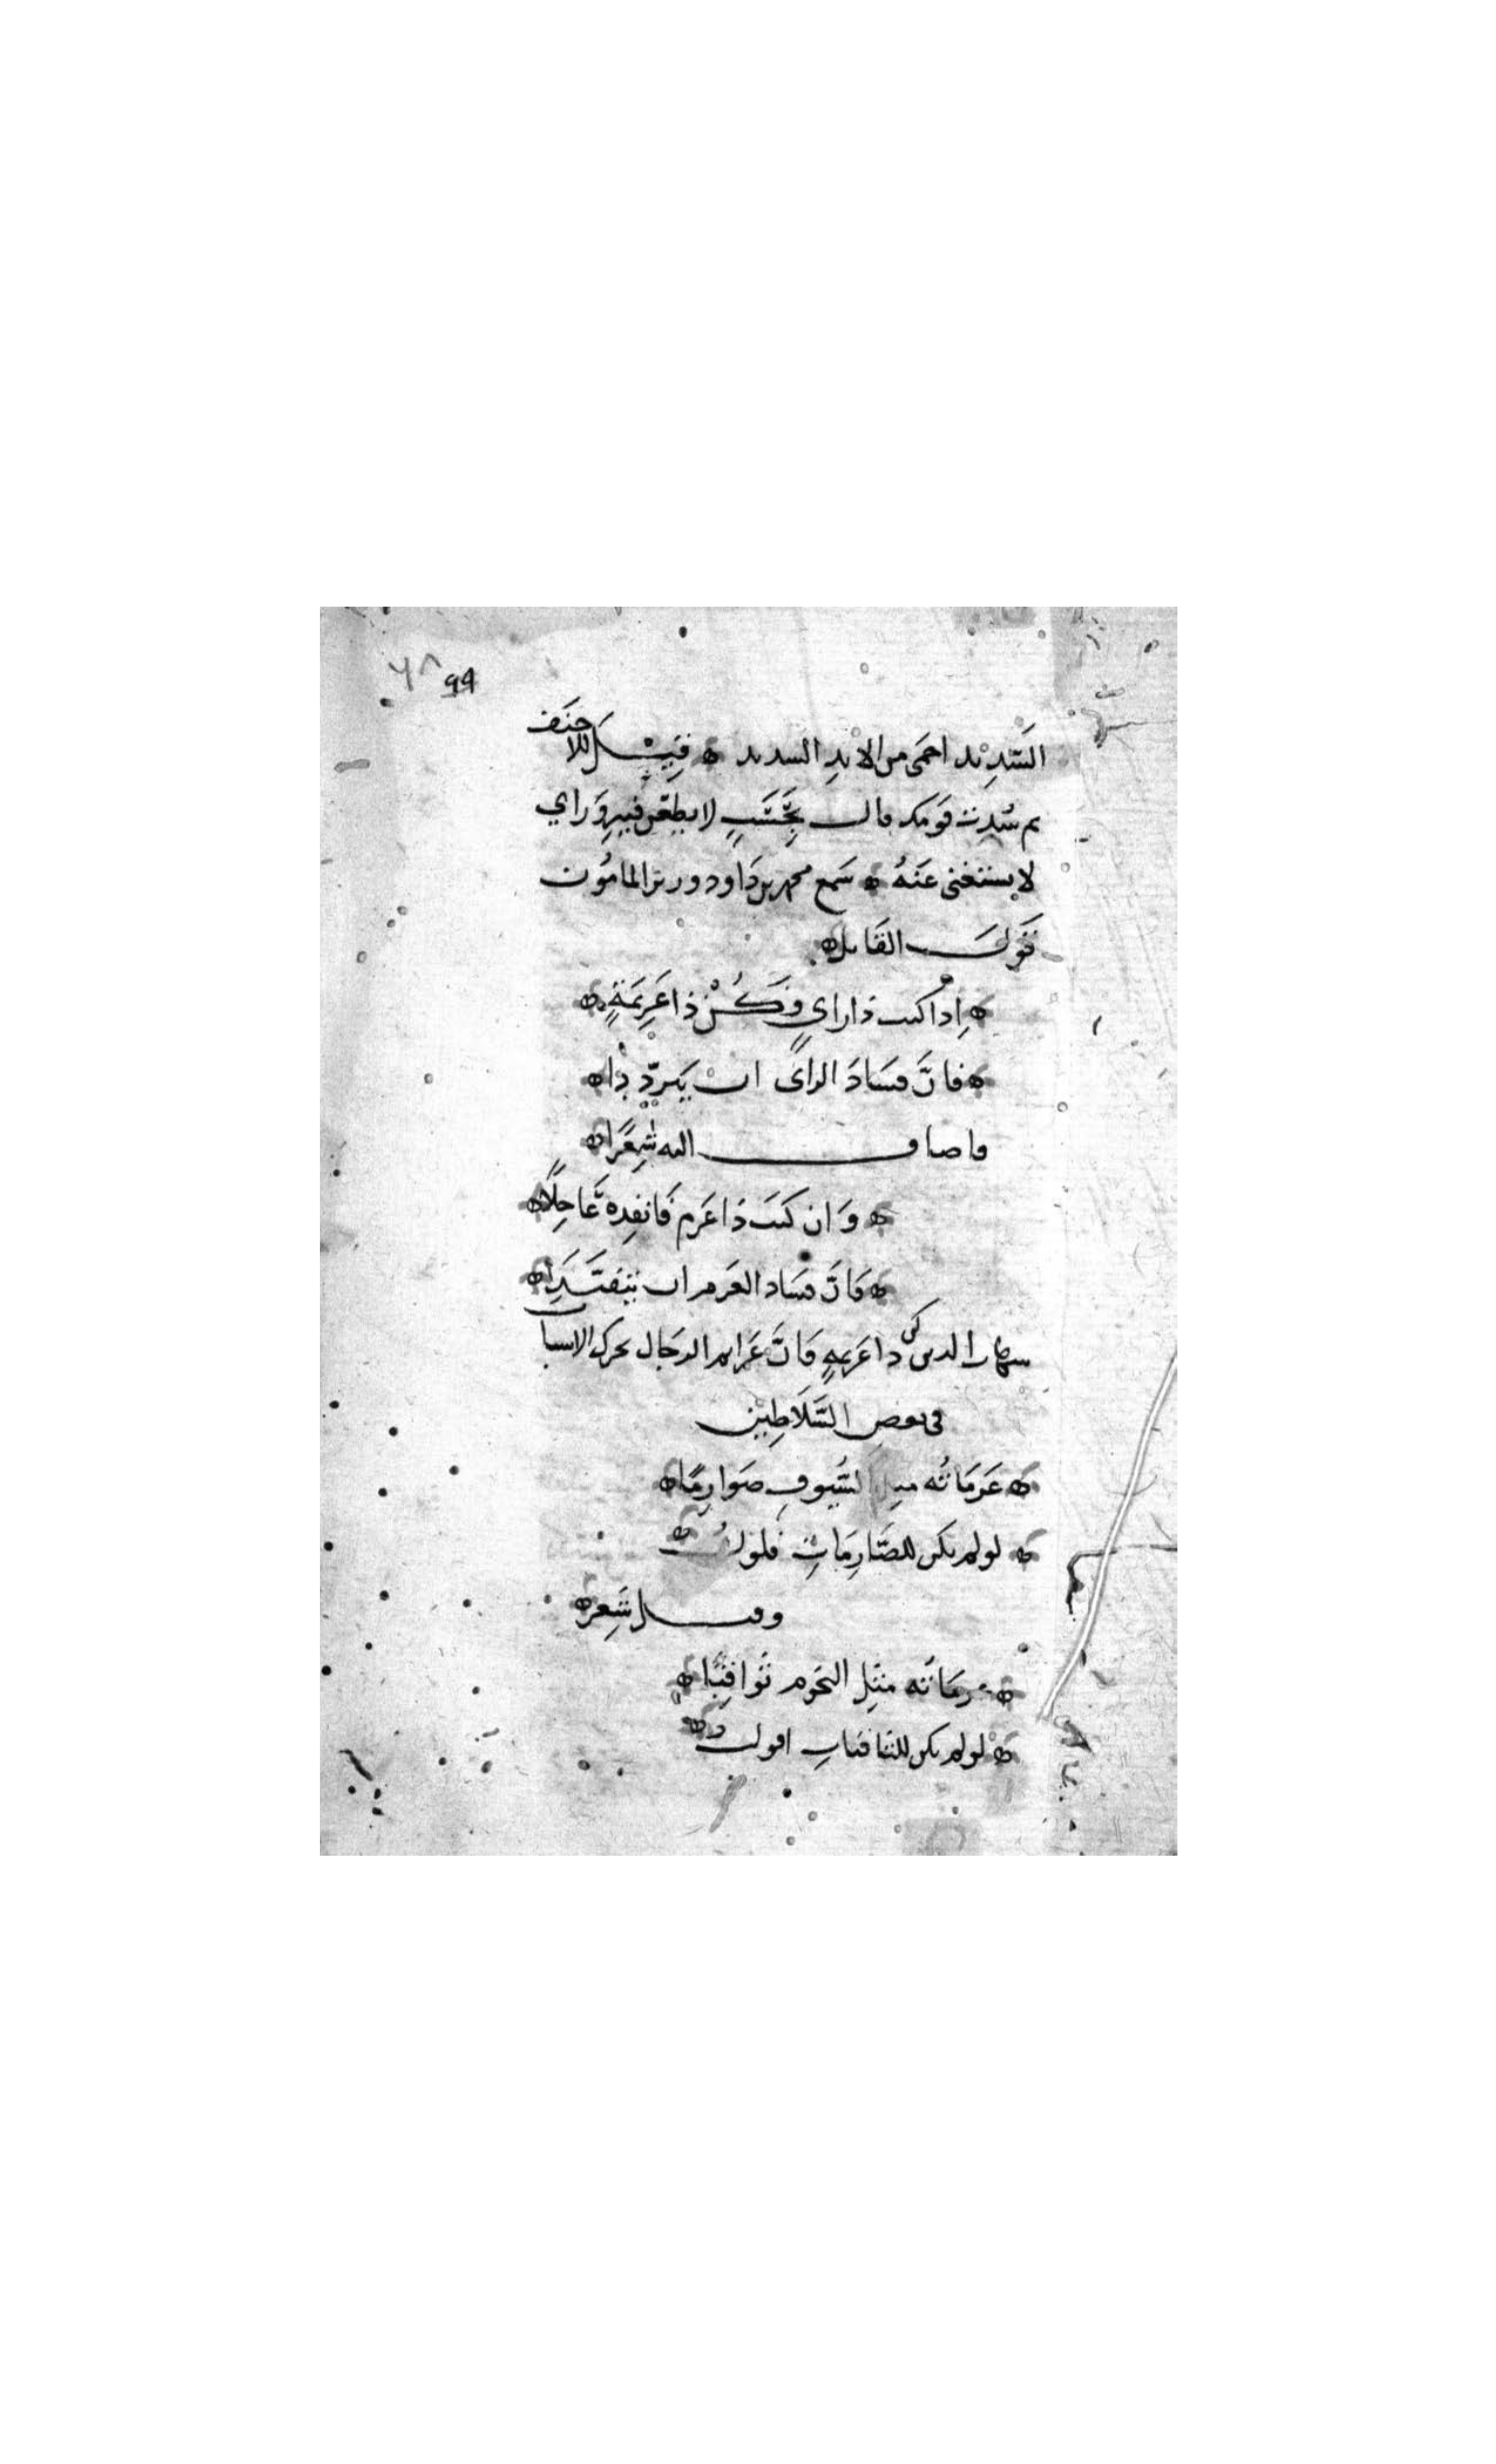 ٩٩ ٦٨
السَّدِيْد احمَى من الايدِ السديد ۞ قِيْـــلَ للاحنَف
بم سُدت قومك قال بحَسَبٍ لا يطعن فيهِ وَراي
لا يستغنى عَنهُ ۞ سَمع محمد بن دَاود وزير المامُون
قَولَ القَايل ۞
۞ اِذا كنت ذا رايٍ فَكُنْ ذا عَزِيمَةٍ ۞
۞ فانَّ فسَادَ الراى ان يَتردّدا ۞
فاضاف اليه شِعرًا ۞
۞ وَان كنتَ ذا عَزم فَانفِده عَاجِلًا ۞
۞ فَانّ فسَاد العَزم ان يتفَنّدَا ۞
بهار الدين كن ذا عَزيمهٍ فَانَّ عَزايم الرجَال تحرك الاسباب
فى بعض السَّلَاطِيْن
۞ عَزمَاتُه مثل السُّيوفِ صَوارِمًا ۞
۞ لو لم يكن للصَّارِمَاتِ فلولُ ۞
وقيل شعر ۞
۞ عزمَاتُه مثل النجُوم ثَوَاقِبًا ۞
۞ لو لم يكن للثاقبات افول ۞